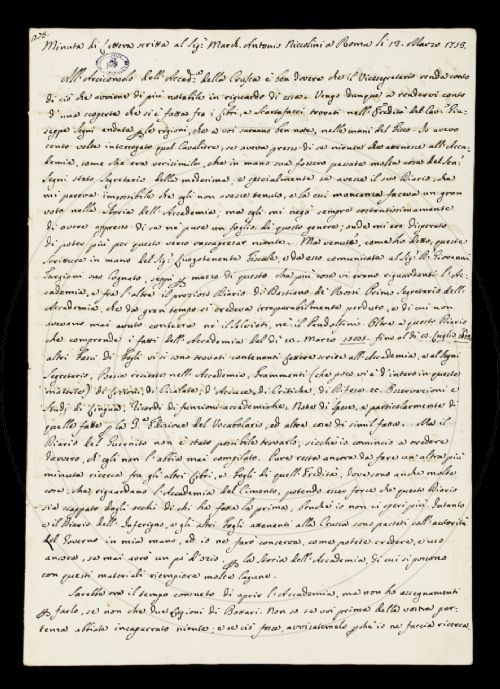 1735.
Minuta di Lettera scritta al Sig.r March. Antonio Niccolini a Roma li 13. Marzo 1735.
All'Arciconsolo dell'Accad.a della Crusca è ben dovere che il Vicesegretario renda conto
di ciò che avviene di più notabile in riguardo di essa. Vengo dunque a rendervi conto
d'una scoperta che si è fatta fra i libri, e Scartafacci trovati nell'Eredità del Cav.r Giu-
seppe Segni andata le ragioni, che a voi saranno ben note, nelle mani del Fisco. Io avevo
cento volte interrogato quel Cavaliere, se aveva presso di se niente che attenesse all'Acca-
demia, come che era verisimile, che in mano sua fossero passate molte cose del Sen.r
Segni stato Segretario della medesima, e specialmente se avesse il suo Diario che
mi pareva impossibile che egli non avesse tenuto, e la cui mancanza faceva un gran
voto nella Storia dell'Accademia; ma egli mi negò sempre costantissimamente
di avere appresso di se nè pure un foglio di questo genere; onde mi ero disperato
di poter più per questo verso raccapezzar niente. Ma venute, come ho detto, queste
Scritture in mano del Sig.r Luogotenente Fiscale, e da esso comunicate al Sig.r D. Giovanni
Targioni suo Cognato, mezzo di questo ho più cose vi erano riguardanti l'Ac-
cademia, e fra l'altre il prezioso Diario di Bastiano de Rossi Primo Segretario dell'
Accademia, che da gran tempo si credeva irreparabilmente perduto, e di cui non
avevano mai avuto contezza nè il Salviati, nè il Pandolfini. Oltre a questo Diario
che comprende i fatti dell'Accademia del dì fino al dì Luglio
altri Fasci di Fogli vi si sono trovati contenenti lettere scritte all'Accademia, e al Segni
Segretario, Poesie recitate nell'Accademia, Frammenti (che poco vi è d'intero in questa
materia) di Lezioni, di Cicalate, d'Accuse, di Critiche, di Difese ec. Osservazioni e
Studj di Lingua, Ricordi di funzioni accademiche, Note di spese, e particolarmente di
quelle fatte la Edizione del Vocabolario, ed altre cose di simil fatta. Ma il
Diario del Guernito non è stato possibile trovarlo, sicchè io comincio a credere
davvero, che egli non l'abbia mai compilato. Pure resta ancora da fare un'altra più
minuta ricerca fra gli altri Libri, e Fogli di quell'Eredità, dove sono anche molte
cose, che riguardano l'Accademia del Cimento, potendo esser forse che questo Diario
sia scappato dagli occhi di chi ha fatta la prima, benchè io non ci speri più. Intanto,
e il Diario dell'Inferigno, e gli altri Fogli attenenti alla Crusca sono passati coll'autorità
del Governo in mia mano, ed io ne farò conserva, come potete credere, e uso
ancora, se mai avrò un pò d'ozio la Storia dell'Accademia, di cui si possono
con questi materiali riempiere molte lagune.
Sarebbe ora il tempo consueto di aprir l'Accademia, ma non ho assegnamenti
farlo, se non che due Lezioni di Bonari. Non so se voi prima della vostra par-
tenza abbiate incaparrato niente, e se ciò fosse, avvisatemelo chè io ne faccia ricerca.